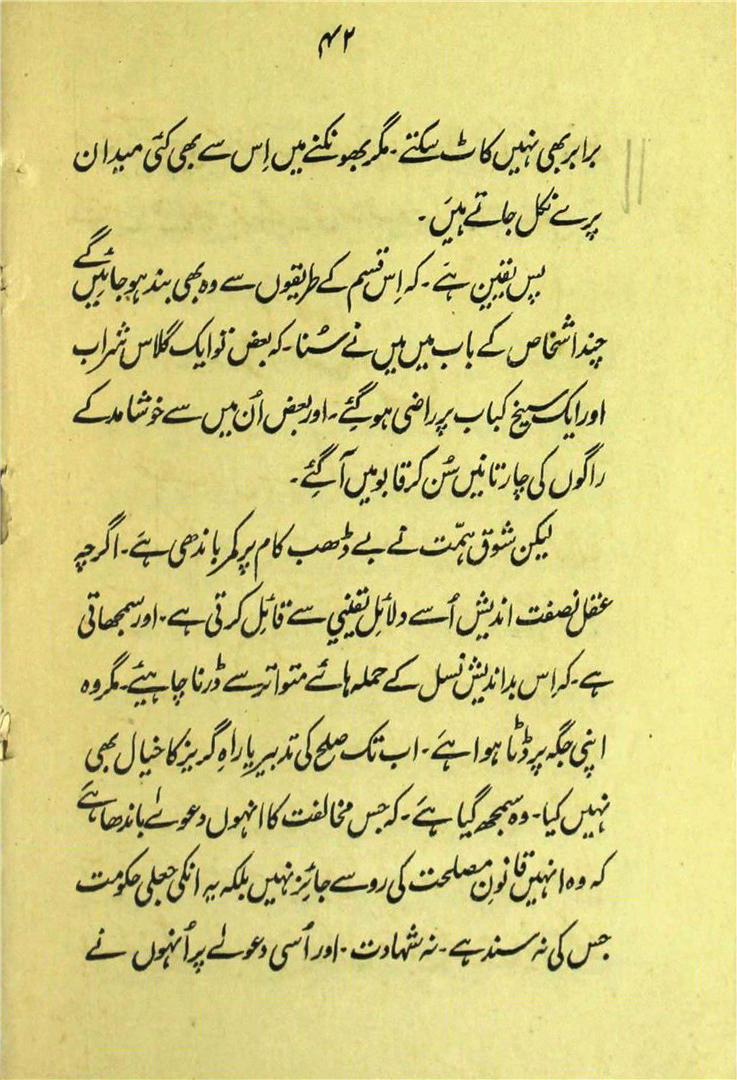 ۴۲
برابر بھی نہیں کاٹ سکتے۔ مگر بھونکنے میں اِس سے بھی کئی میدان
پرے نکل جاتے ہیَں۔
پس یقین ہَے۔ کہ اِس قسم کے طریقوں سے وہ بھی بند ہو جائیں گے
چند اشخاص کے باب میں مَیں نے سُنا۔ کہ بعض تو ایک گلاس شراب
اور ایک سیخ کباب پر راضی ہو گئے۔ اور بعض اُن میں سے خوشامد کے
راگوں کی چار تانیں سُن کر قابو میں آ گئے۔
لیکن شوق ہمّت نے بے ڈھب کام پر کمر باندھی ہَے۔ اگرچہ
عقل نصفت اندیش اُسے دلائلِ یقینی سے قائل کرتی ہے۔ اور سمجھاتی
ہے۔ کہ اس بداندیش نسل کے حملہ ہائے متواتر سے ڈرنا چاہیئے۔ مگر وہ
اپنی جگہ پر ڈٹا ہوا ہَے۔ اب تک صلح کی تدبیر یا راہِ گریز کا خیال بھی
نہیں کیا۔ وہ سمجھ گیا ہَے۔ کہ جس مخالفت کا انہوں دعوےٰ باندھا ہَے
کہ وہ انہیں قانونِ مصلحت کی رو سے جائز نہیں بلکہ یہ انکی جعلی حکومت
جس کی نہ سند ہے۔ نہ شہادت۔ اور اُسی دعوےٰ پر اُنہوں نے